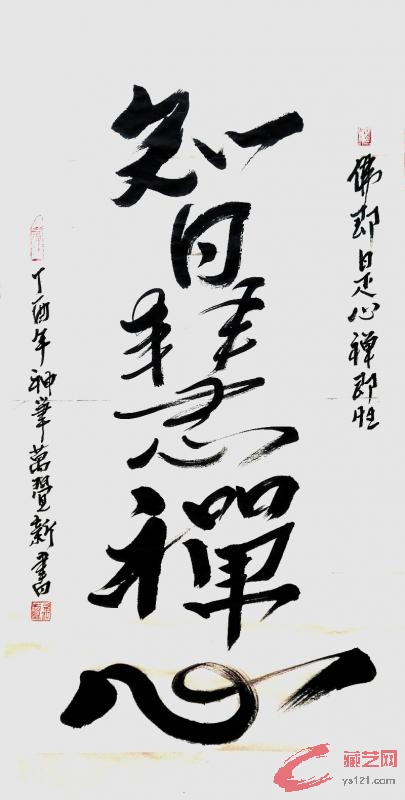 佛即是心禪即性
智慧禪心
丁酉年神筆萬覺新書
藏艺网
ys121.com